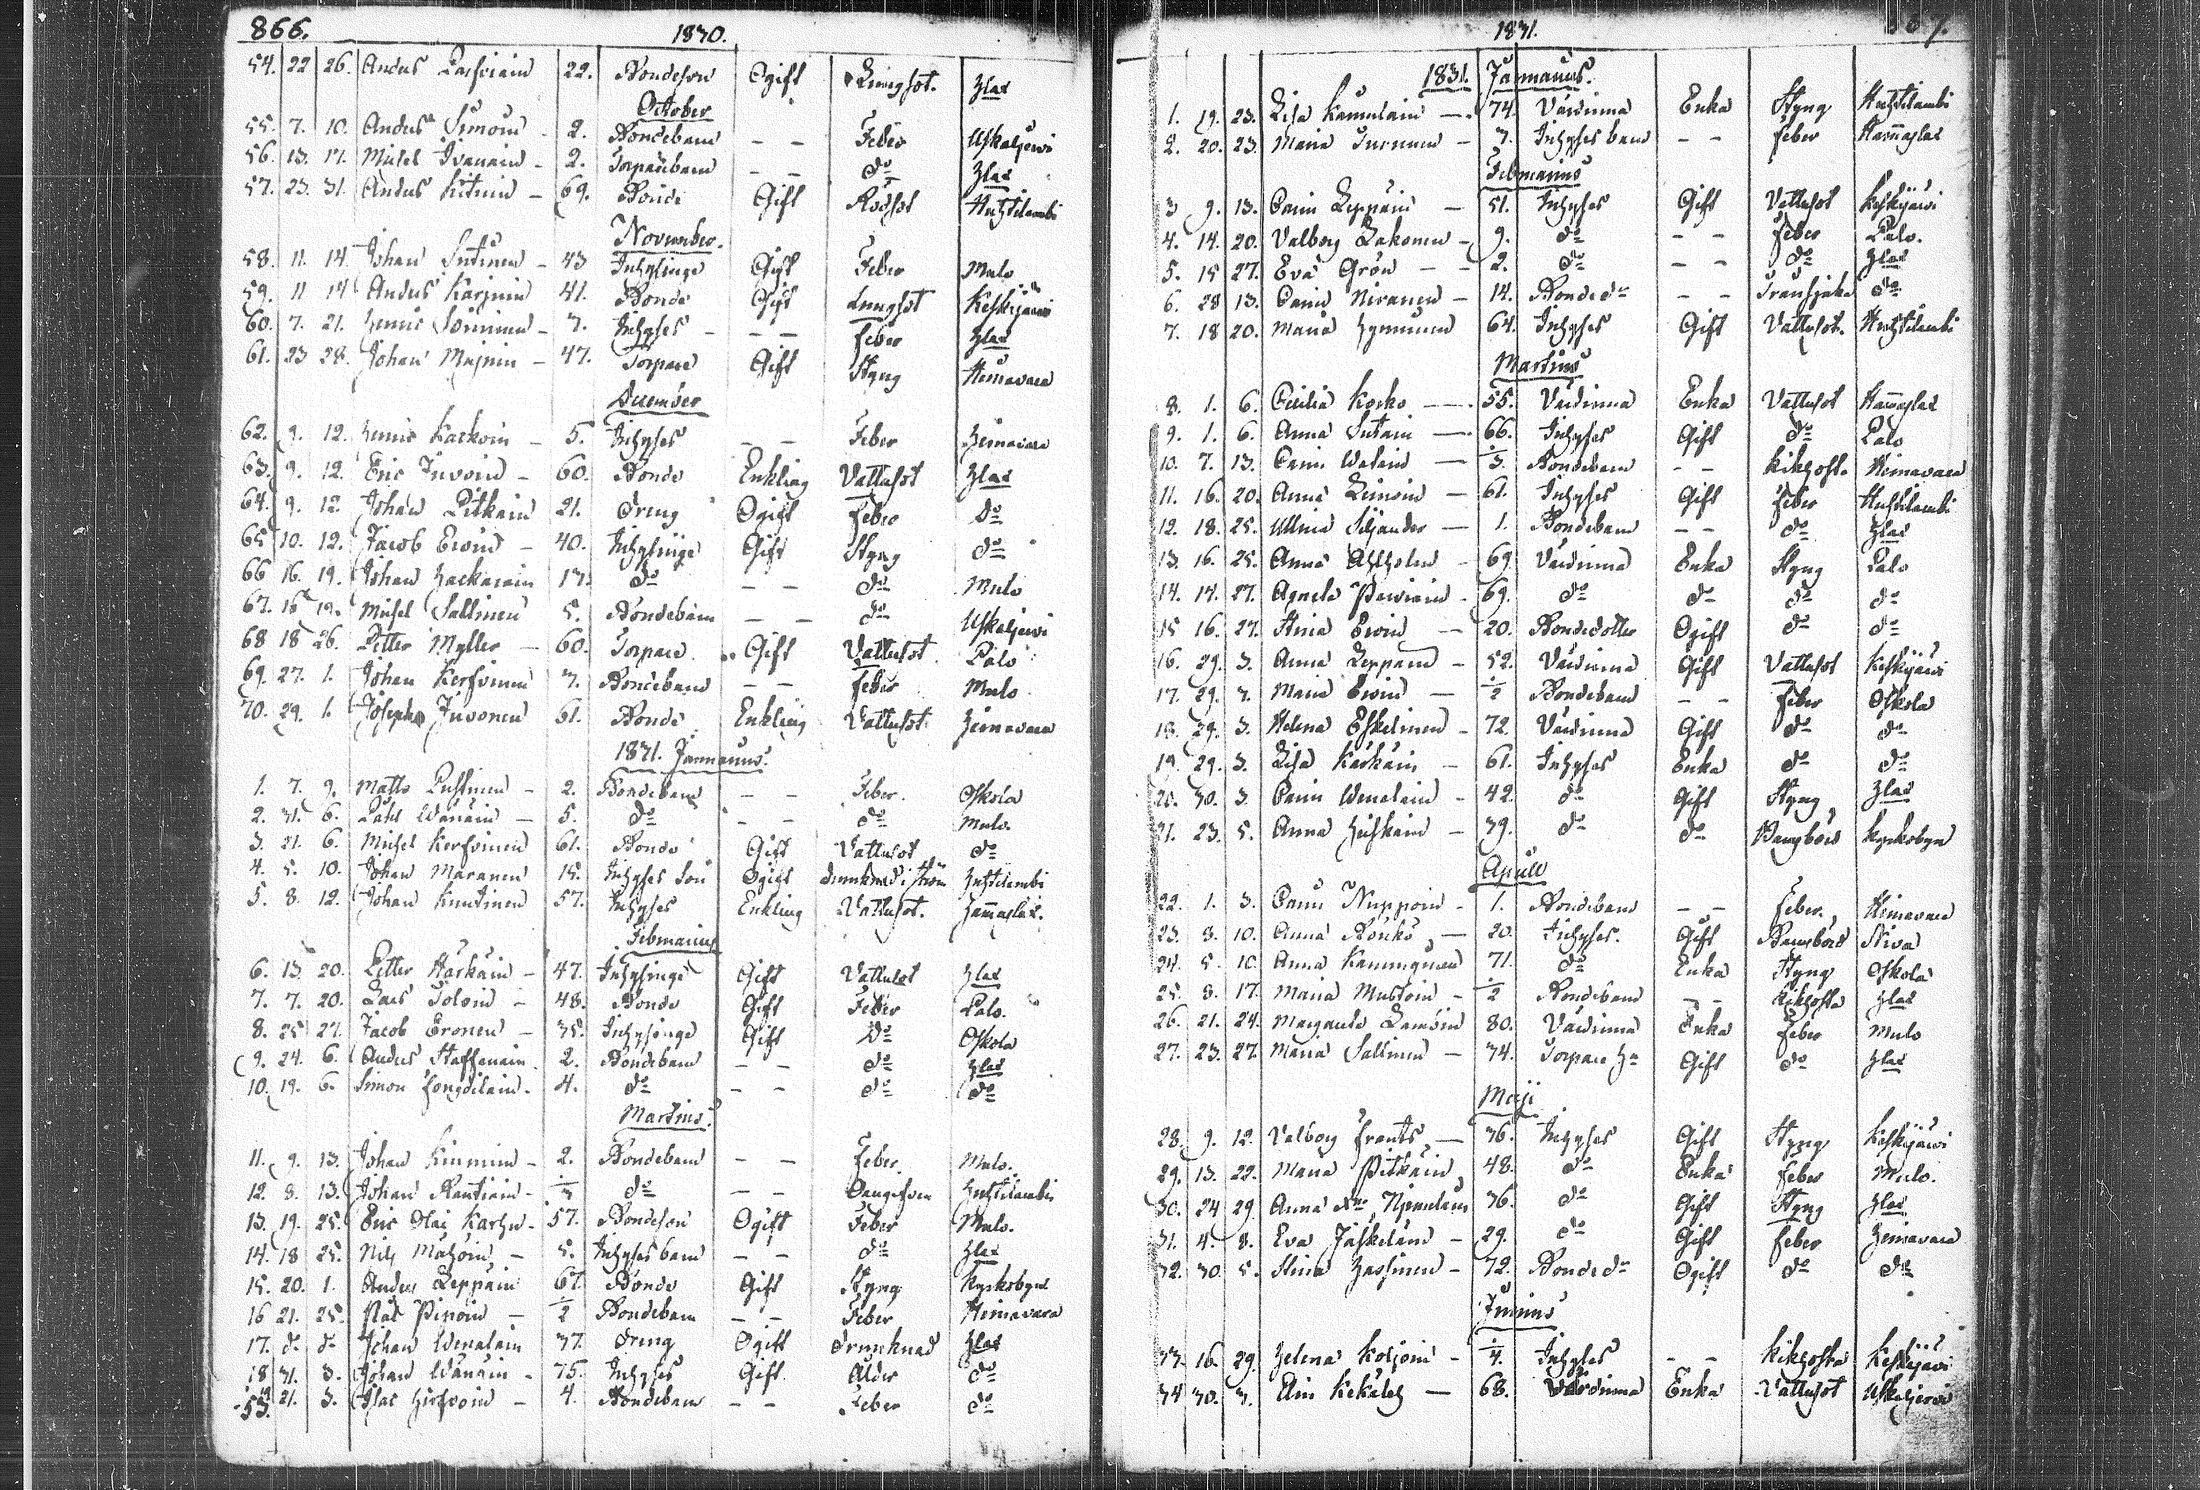 866.
1830.
54. 22 26. Anders 22. Bondeson Ogift Lungsot. Ilas
October
55. 7. 10. Anders Simoin - 2. Bondebarn - - Feber Uskaljerwi
56. 13. 17. Michel Ivanain - 2. Torparebarn - - do Ilas
57. 23. 31. Anders Kitunin - 69. Bonde Gift Rödsot Huhtilambi
November.
58. 11. 14. Johan Sutinen - 43 Inhysinge Gift Feber Mulo
59. 11 14 Anders Karjuin 41. Bonde Gift Lungsot Keskijärwi
60. 7. 21. Henric Sorminen - 7. Inhyses - - - Feber Ilas
61. 23 28. Johan Majnin - 47. Torpare Gift Styng Heinavara
December
62. 9. 12. Henric Karkoin - 5. Inhyses - - Feber Heinavara
63. 9. 12. Eric Juvoin - 60. Bonde Enkling Vattusot Ilas
64. 9. 12 Johan Pitkain 21. Dreng Ogift Feber do
65 10. 12. Jacob Eroin - 40. Inhysinge Gift Styng do
66 16. 19. Johan Zackarain 17. do - - do Mulo
67. 16 19. Michel Sallinen 5. Bondebarn - - do Uskaljerwi
68 18 26. Petter Myller - 60. Torpare Gift Vattusot Palo
69. 27. 1. Johan Kerfvinen 7. Bondebarn - - Feber Mulo
70. 29. 1. Joseph Juvonen 61. Bonde Enkling Vattusot Heinavara
1831. Januarius.
1. 7. 9. Matts Pussinen - 2. Bondebarn - - Feber. Oskola
2. 31. 6. Påhl Wänäin - 5. do - - do Mulo.
3. 21. 6. Michel Kerfvinen 61. Bonde Gift Vattusot do
4. 5. 10. Johan Maranen 15. Inhyses Son Ogift drunknad i ström Huhtilambi
5. 8. 12. Johan Knutinen 57. Inhyses Enkling Vattusot. Hammaslax.
Februarius
6. 15 20. Petter Härkäin - 47. Inhysinge Gift Vattusot Ilas
7. 7. 20. Lars Toloin - 48. Bonde Gift Feber Palo.
8. 25 27. Jacob Eronen - 35. Inhysinge Gift do Oskola
9. 24. 6. Anders Staffanain 2. Bondebarn - - do Ilas
10. 19. 6. Simon 4. do - - do do
Martius.
11. 9. 13. Johan Kinninen - 2. Bondebarn - - Feber. Mulo.
12. 8. 13. Johan Rautiain - do - - Huhtilambi
13. 19. 25. Eric Olai Karhu - 57. Bondeson Ogift Feber Mulo.
14. 18 25. Nils Mähöin - 5. Inhyses barn - - do Ilas
15. 20. 1. Anders Leppäin 67. Bonde Gift Styng Kyrkobyn
16 21. 25. Påhl Piroin - 1/2 Bondebarn - - Feber Heinavara
17. do do Johan Wenalain 37. Dreng Ogift Drunknad Ilas
18 31. 3. Johan Wänäin - 75. Inhyses Gift Ålder do
21. 3. Isac Hirfvoin - 4. Bondebarn - - Feber do
1831.
1831. Januarius.
1. 19. 23. Lisa Kämäläin - 74. Värdinna Enka Styng Huhtilambi
2. 20. 23. Maria Turunen - 7. Inhyses barn - - Feber Hammaslax
Februarius
3 9. 13. Carin Leppäin - 51. Inhyses Gift Vattusot Keskijärwi
4. 14. 20. Valborg Lakonen - 9. do - - Feber Palo.
5. 15 27. Eva Grön - - 2. do - - do Ilas
6. 28 13. Carin Nivanen - 14. Bonde dr - - Transjuka do
7. 18 20. Maria Hynninen 64. Inhyses Gift Vattusot. Huhtilambi
Martius
8. 1. 6. Cecilia Korko - 55. Värdinna Enka Vattusot Hammaslax
9. 1. 6. Anna Sutain - 66. Inhyses Gift do Palo
10. 7. 13. Carin Watain - 1/3. Bondebarn - - Kikhosta Heinavara
11. 16. 20. Anna Leinoin - 61. Inhyses Gift Feber Huhtilambi
12. 18. 25. Ullrica Siljander - 1. Bondebarn - - do Ilas
13. 16. 25. Anna Ahlholm - 69. Värdinna Enka Styng Palo
14. 14. 27. Agneta Parviain - 69. do do do do
15 16. 27. Stina Eroin - 20. Bondedotter Ogift do do
16. 29. 3. Anna Leppäin - 52. Värdinna Gift Vattusot Keskijärwi
17. 29. 3. Maria Eroin - 1/2 Bondebarn - - Feber Oskola
18. 29. 3. Helena Eskelinen - 72. Värdinna Gift do do
19. 29. 3. Lisa Karkäin - 61. Inhyses Enka do do
20. 30. 3. Carin Wenalain - 42. do Gift Styng Ilas
21. 23. 5. Anna Heiskain - 39. do do Barnsbörd Kyrkobyn
Aprill
22. 1. 3. Carin Nuppoin - 1. Bondebarn - - Feber. Heinavara
23. 8. 10. Anna Rönkö - 20. Inhyses. Gift Barnsbörd Niva
24. 5. 10. Anna 71. do Enka Styng Oskola
25. 8. 17. Maria Mustoin - 1/2 Bondebarn - - Kikhosta Ilas
26. 21. 24. Margareta Lamoin 80. Värdinna Enka Feber Mulo
27. 23. 27. Maria Sallinen - 74. Torpare Hu Gift do Ilas
Maji
28. 9. 12. Valborg Frants - 36. Inhyses Gift Styng Keskijärwi
29. 13. 22. Maria Pitkäin 48. do Enka Feber Mulo.
30. 24 29. Anna 36. do Gift Styng Ilas
31. 4. 8. Eva Jäskeläin - 29. do Gift Feber Heinavara
32. 30. 5. Stina Hassinen - 72. Bonde dr Ogift do do
Junius
33. 16. 29. Helena Korjoin - 1/4. Inhyses - - Kikhosta Keskijärwi
34 30. 3. Elin Kekäläs - 68. Värdinna Enka Vattusot Uskaljerwi